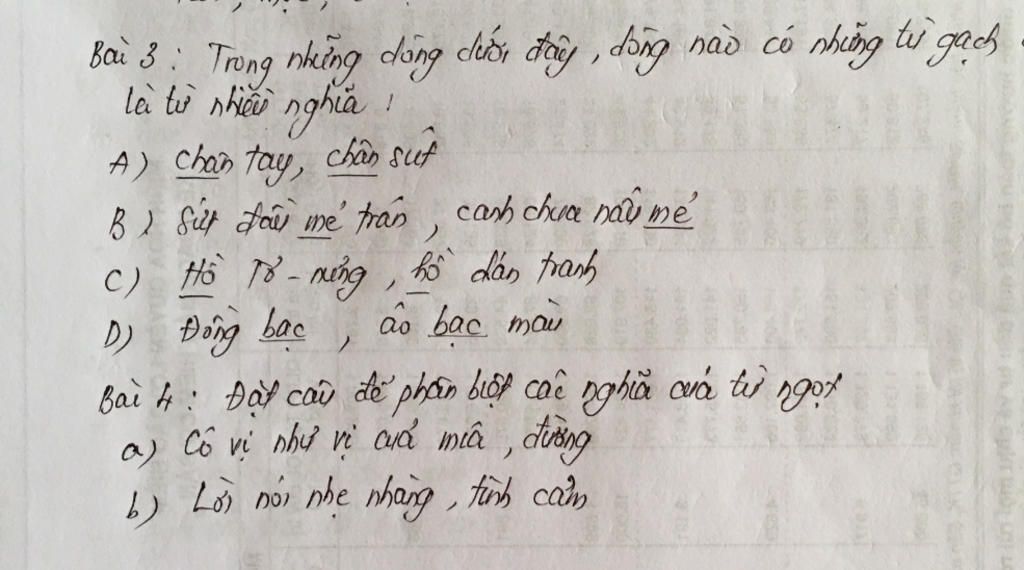 Bài 3 : Trong những dòng dưới đây, dòng nào có những từ gạch
là từ nhiều nghĩa !
A) chân tay, chân sút
B) Sứt đầu mẻ trán, canh chua nấu mẻ
C) Hồ Tơ-nưng, hồ dán tranh
D) Đồng bạc, áo bạc màu
Bài 4 : Đặt câu để phân biệt các nghĩa của từ ngọt
a) Có vị như vị của mía, đường
b) Lời nói nhẹ nhàng, tình cảm